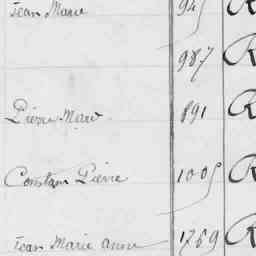 Jean Marie 945 R
987 R
Pierre Marie 891 R
Constant Pierre 1005 R
Jean Marie anne 1769 R